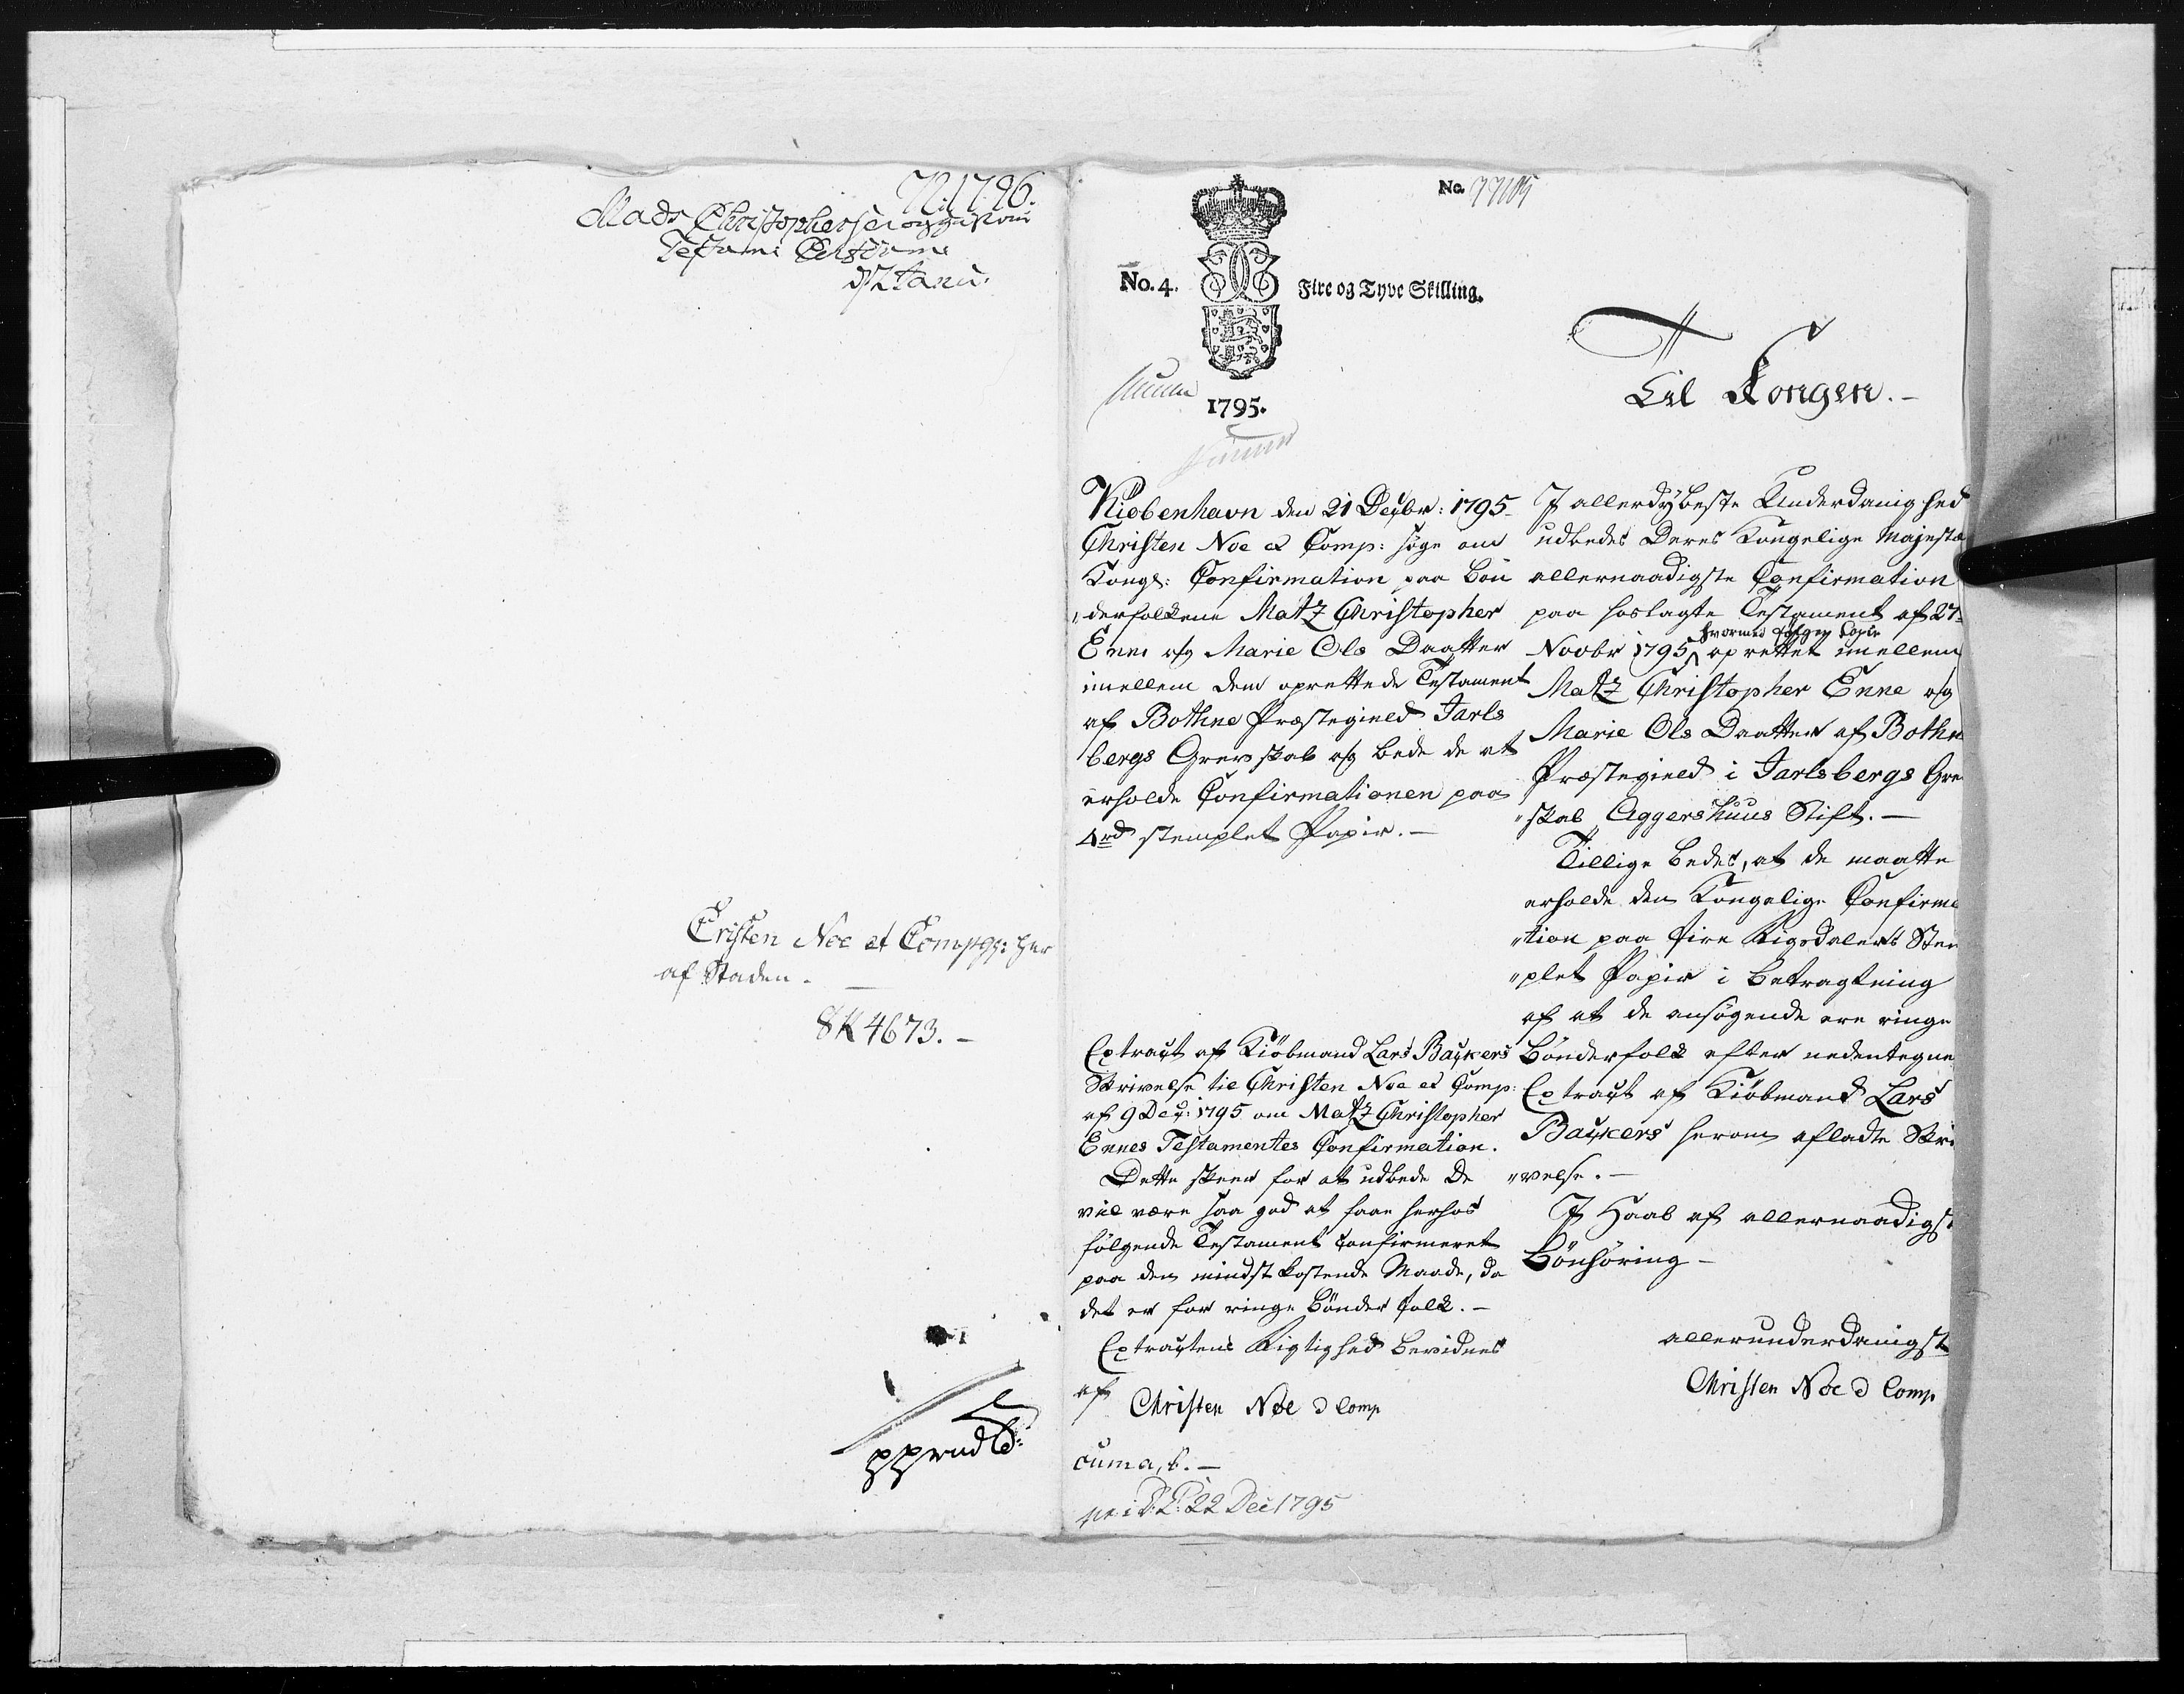 72. 1796.
Mads Christophersen og Hustrues
Testam: Confirm:
d. 2 Janu:
Cristen Noe et Compge: her
af Staden. —
8K 4673. —
No. 77105
No. 4. Fire og Tyve Skilling.
1795.
Til Kongen. —
Kiöbenhavn den 21 Decbr: 1795
Christen Noe & Comp: söge om
Kongl: Confirmation paa Bön
„derfolkene Matz Christopher
Enne og Marie Ols Daatter
imellem dem oprettede Testament
af Bothne Præstegield Jarls
bergs Grevskab og bede de at
erholde Confirmationen paa
4rd stemplet Papir. —
Extract af Kiöbmand Lars Backers
Skrivelse til Christen Noe et Comp:
af 9 Dec: 1795 om Matz Christopher
Ennes Testamentes Confirmation.
Dette skeer for at udbede De
vil være saa god at faae herhos
fölgende Testament Confirmeret
paa den mindst kostende Maade, da
det er for ringe Bönder Folk. —
Extractens Rigtighed bevidnes
af Christen Noe & Comp
22 Dec 1795
I allerdybeste Underdanighed
udbedes Deres Kongelige Majestæ
allernaadigste Confirmation
paa hoslagte Testament af 27
hvormed fölger Copie
Novbr 1795 oprettet imellem
Matz Christopher Enne og
Marie Ols Daatter af Bothn
Præstegield i Jarlsbergs Gre
„skab Aggershuus Stift. —
Tillige bedes, at de maatte
erholde den Kongelige Confirma
„tion paa fire Rigsdalers Stem
„plet Papir i Betragtning
af at de ansögende ere ringe
Bönderfolk efter nedentegne
Extract af Kiöbmand Lars
Backers herom afladte Skri
„velse. —
I Haab af allernaadigst
Bönhöring —
allerunderdanigst
Christen Noe & Comp